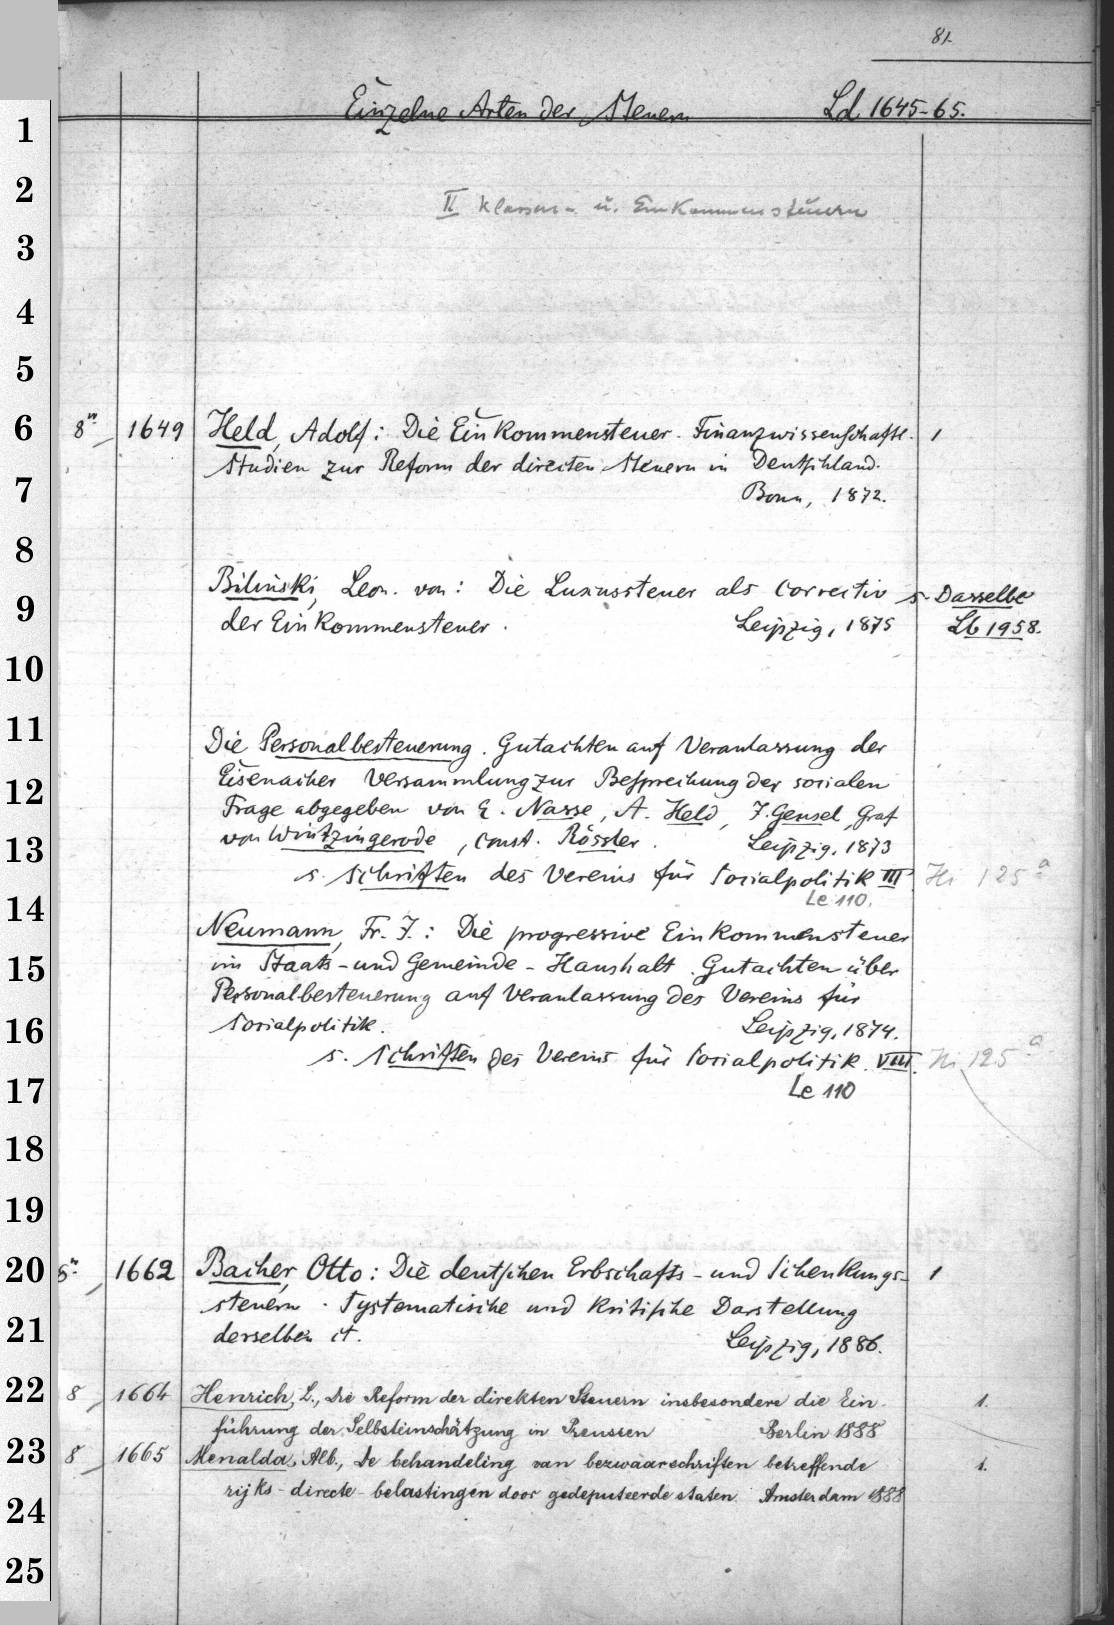 81.
Einzelne Arten der Steuern Ld 1645-65.
II Klassen- u. Einkommensteuern
1
2
3
4
5
6
7
8
9
10
11
12
13
14
15
16
17
18
19
20
21
22
23
24
25
8° 1649 Held, Adolf: Die Einkommensteuer. Finanzwissenschaftl. 1
Studien zur Reform der directen Steuern in Deutschland.
Bonn, 1872.
Bilinski, Leon. von: Die Luxussteuer als Correctiv s. Dasselbe
der Einkommensteuer. Leipzig, 1875 Lb 1958.
Die Personalbesteuerung. Gutachten auf Veranlassung der
Eisenacher Versammlung zur Besprechung der socialen
Frage abgegeben von E. Nasse, A. Held, J. Gensel, Graf
von Wintzingerode, Const. Rössler. Leipzig, 1873
s. Schriften des Vereins für Socialpolitik III Hi 125 a
Le 110.
Neumann, Fr. J.: Die progressive Einkommensteuer
im Staats- und Gemeinde-Haushalt. Gutachten über
Personalbesteuerung auf Veranlassung des Vereins für
Socialpolitik. Leipzig, 1874.
s. Schriften des Vereins für Socialpolitik. VIII. Hi 125 a
Le 110
8° 1662 Bacher, Otto: Die deutschen Erbschafts- und Schenkungs- 1
steuern. Systematische und kritische Darstellung
derselben it. Leipzig, 1886.
8 1664 Henrich, L., Die Reform der direkten Steuern insbesondere die Ein- 1.
führung der Selbsteinschätzung in Preussen Berlin 1888
8 1665 Menalda, Alb., De behandeling van bezwaarschriften betreffende 1.
rijks-directe-belastingen door gedeputeerde staten Amsterdam 1888